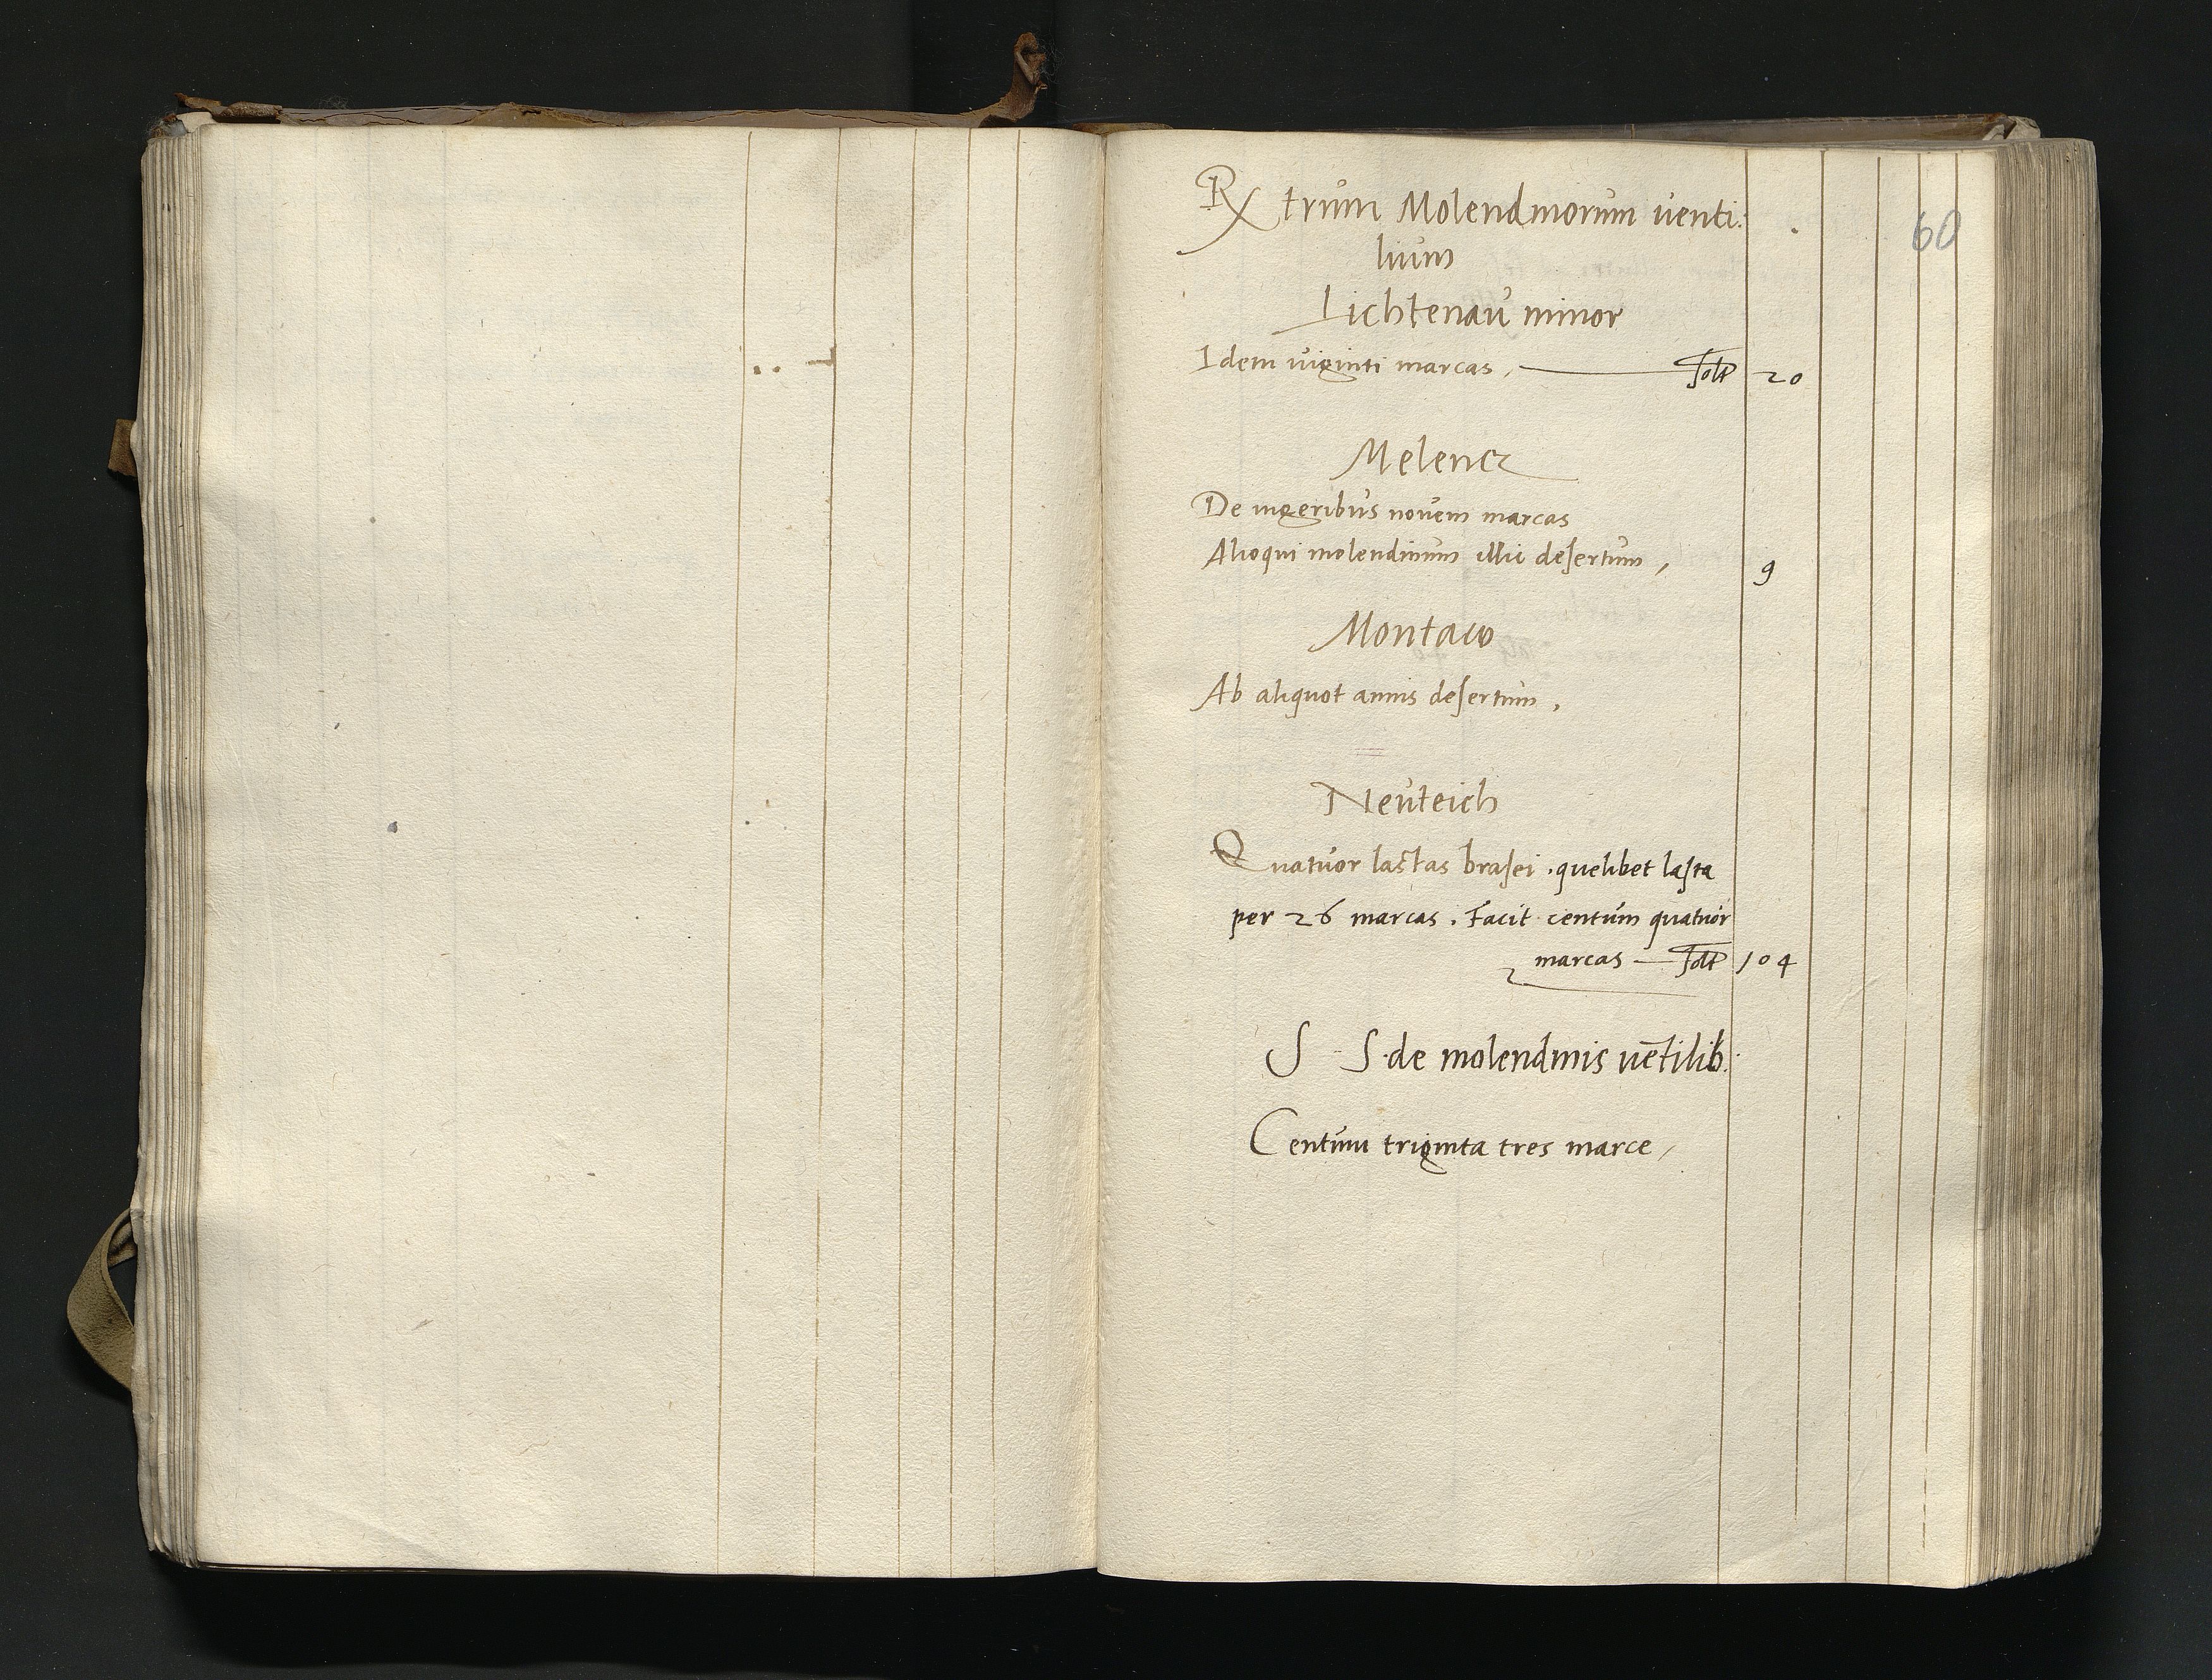 60
Rx trum Molendinorum venti:
lium
Lichtenau minor
Idem viginti marcas, — solt 20
Melencz
De iugeribus novem marcas
Alioqui molendinum illic desertum, 9
Montaw
Ab aliquot annis desertum,
Neuteich
Quatuor lastas brasei. quelibet lasta
per 26 marcas. Facit centum quatuor
marcas — solt 104
S S de molendinis vētilib:
Centum triginta tres marce,